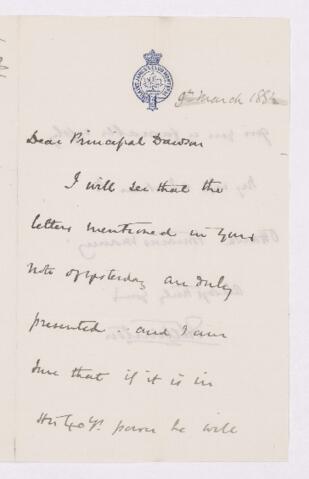 9th March 188
Dear Principal Dawson
I will see that the
letters mentioned in your
note of yesterday are duly
presented .. and I am
sure that if it is in
His Excy's. power he will